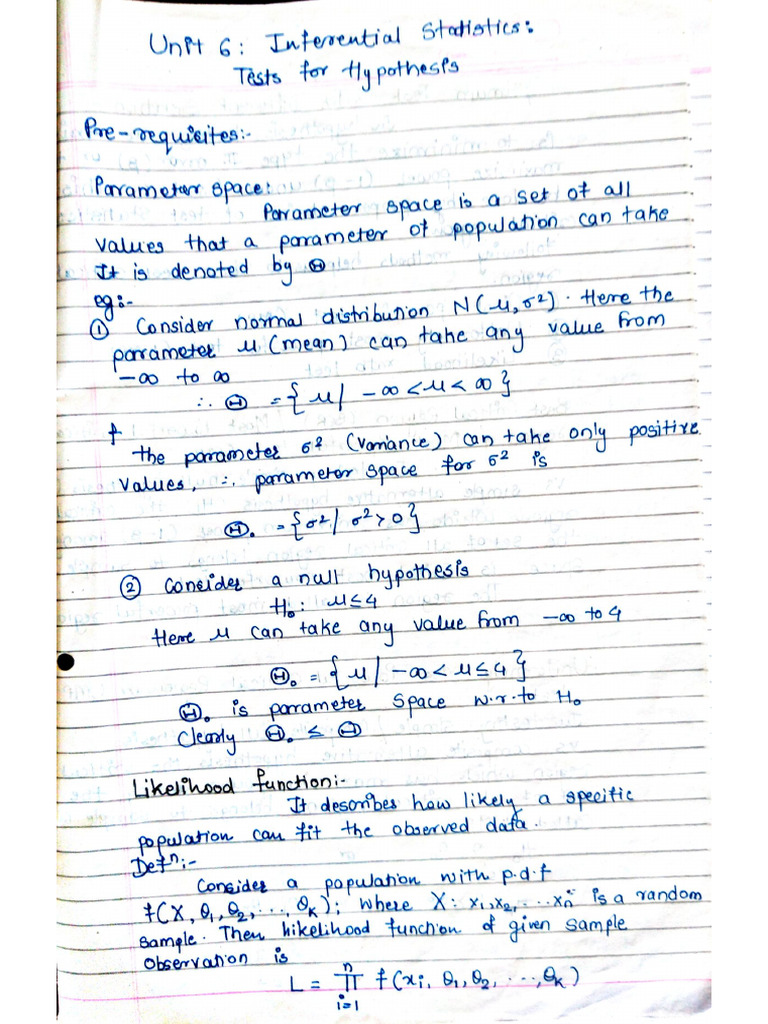 Unit 6: Inferential Statistics:
Tests for Hypothesis
Pre-requisites:-
Parameter space:
Parameter space is a set of all
values that a parameter of population can take
It is denoted by Θ
eg:-
① Consider normal distribution N(μ, σ²). Here the
parameter μ (mean) can take any value from
-∞ to ∞
∴ Θ = {μ | -∞ < μ < ∞}
f the parameter σ² (variance) can take only positive
values, ∴ parameter space for σ² is
Θ₀ = {σ² | σ² > 0}
② Consider a null hypothesis
H₀: μ ≤ 4
Here μ can take any value from -∞ to 4
Θ₀ = {μ | -∞ < μ ≤ 4}
Θ₀ is parameter space w.r.to H₀
Clearly Θ₀ ≤ Θ
Likelihood function:-
It describes how likely a specific
population can fit the observed data.
Defⁿ:-
Consider a population with p.d.f
f(X, θ₁, θ₂, ..., θₖ); where X: x₁, x₂, ... xₙ is a random
sample. Then likelihood function of given sample
observation is
L = ∏ⁿᵢ₌₁ f(xᵢ, θ₁, θ₂, ..., θₖ)